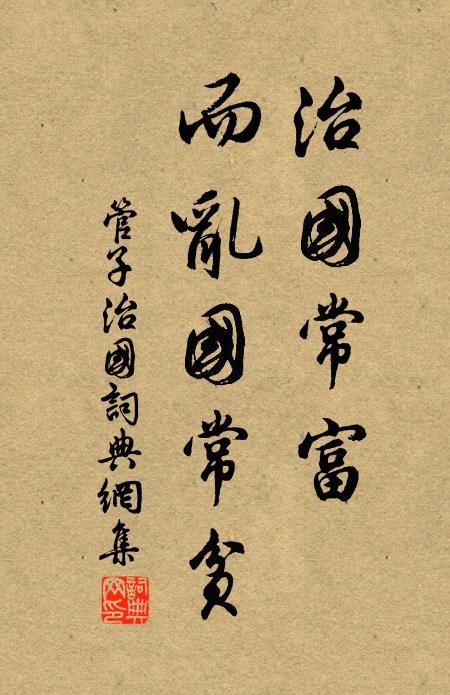 治國常富
而亂國常貧
管子治國詞典網集
詞典網印